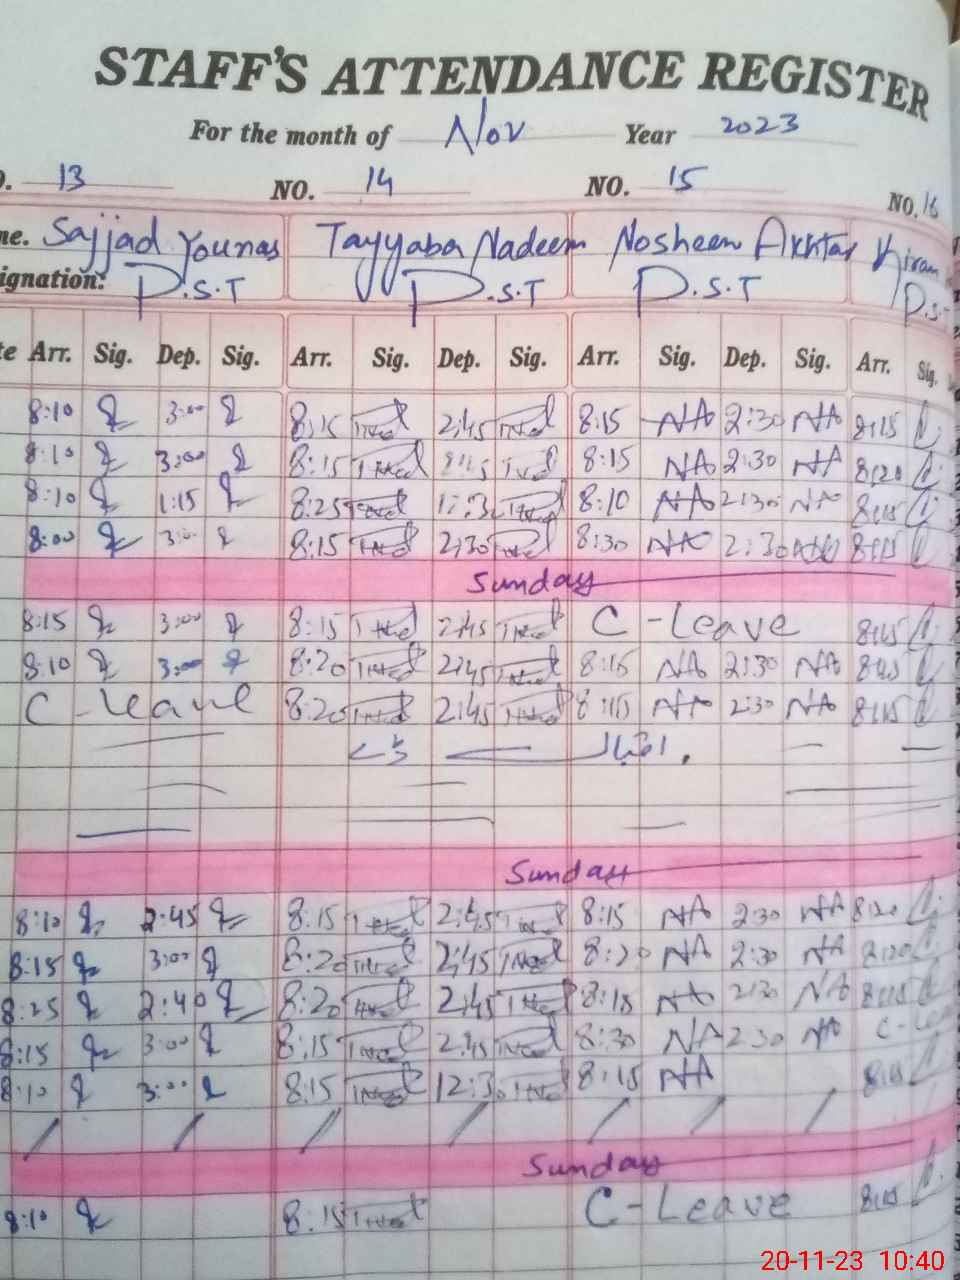 STAFF'S ATTENDANCE REGISTER
For the month of Nov Year 2023
13 NO. 14 NO. 15 NO. 16
me. Sajjad Younas Tayyaba Nadeem Nosheen Akhtar Kiran
ignation: P.S.T P.S.T P.S.T P.S.
te Arr. Sig. Dep. Sig. Arr. Sig. Dep. Sig. Arr. Sig. Dep. Sig. Arr. Sig.
8:10 3:00 8:15 2:45 8:15 NA 2:30 NA 8:15
8:10 3:00 8:15 8:15 NA 2:30 NA 8:20
8:10 1:15 8:25 8:10 NA 2:30 NA 8:15
8:00 3:00 8:15 2:30 8:30 NA 2:30 NA 8:15
Sunday
8:15 3:00 8:15 2:45 C-Leave 8:15
8:10 3:00 8:20 2:45 8:15 NA 2:30 NA 8:15
C-Leave 8:20 2:45 8:15 NA 2:30 NA 8:15
Sunday
8:10 2:45 8:15 2:45 8:15 NA 2:30 NA 8:20
8:15 3:00 8:20 2:45 8:20 NA 2:30 NA 8:20
8:25 2:40 8:20 2:45 8:15 NA 2:30 NA 8:15
8:15 3:00 8:15 2:45 8:30 NA 2:30 NA C-Lea
8:10 3:00 8:15 12:30 8:15 NA 8:15
Sunday
8:10 8:15 C-Leave 8:15
20-11-23 10:40